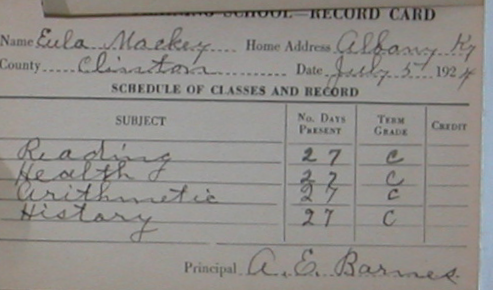 SCHOOL—RECORD CARD
Name Eula Mackey Home Address Albany Ky
County Clinton Date July 5 1924
SCHEDULE OF CLASSES AND RECORD
SUBJECT No. Days Present Term Grade Credit
Reading 27 C
Health 27 C
Arithmetic 27 C
History 27 C
Principal A. E. Barnes